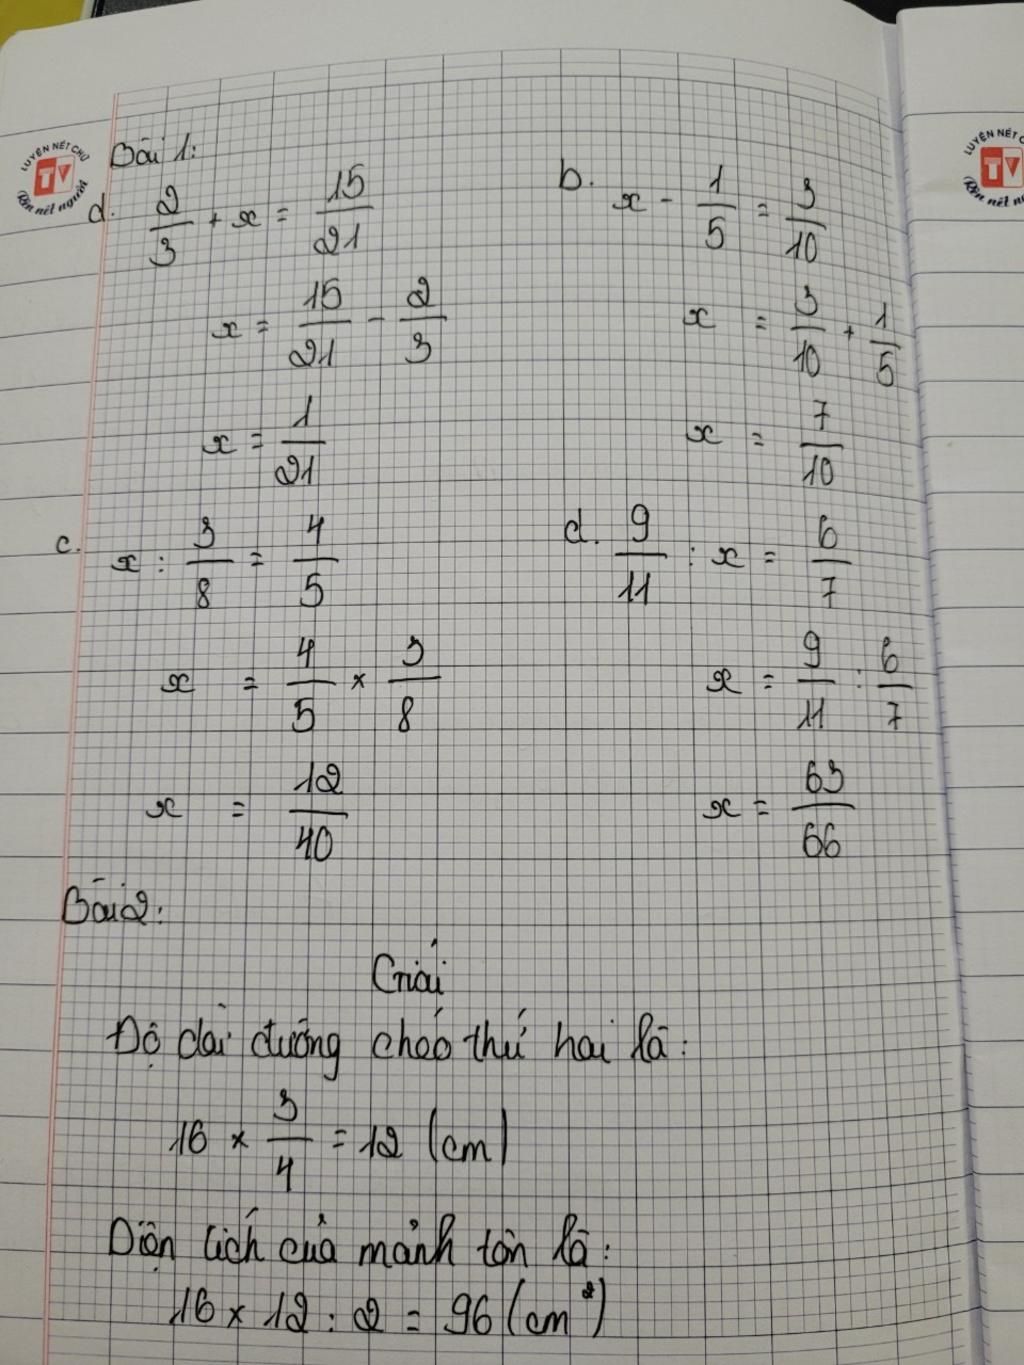 LUYỆN NẾT CHỮ
TV
Rèn nết người
LUYỆN NẾT
TV
Rèn nết
Bài 1:
a. 2/3 + x = 15/21
x = 15/21 - 2/3
x = 1/21
b. x - 1/5 = 3/10
x = 3/10 + 1/5
x = 7/10
c. x : 3/8 = 4/5
x = 4/5 × 3/8
x = 12/40
d. 9/11 : x = 6/7
x = 9/11 : 6/7
x = 63/66
Bài 2:
Giải
Độ dài đường chéo thứ hai là:
16 × 3/4 = 12 (cm)
Diện tích của mảnh tôn là:
16 × 12 : 2 = 96 (cm²)